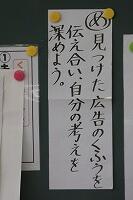 め 見つけた広告のくふうを
伝え合い、自分の考えを
深めよう。
①